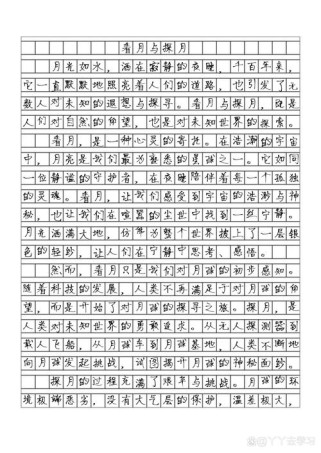 看月与探月
月光如水，洒在寂静的夜晚，千百年来，
它一直默默地照亮着人们的道路，也引发了无
数人对未知的遐想与探寻。看月与探月，既是
人们对自然的仰望，也是对未知世界的探索。
看月，是一种心灵的寄托。在浩瀚的宇宙
中，月亮是我们最为熟悉的星球之一。它如同
一位静谧的守护者，在夜晚陪伴着每一个孤独
的灵魂。看月，让我们感受到宇宙的浩渺与神
秘，也让我们在喧嚣的尘世中找到一丝宁静。
月光洒满大地，仿佛为整个世界披上了一层银
色的轻纱，让人们在宁静中思考、感悟。
然而，看月只是我们对月球的初步感知。
随着科技的发展，人类不再满足于对月球的仰
望，而是开始了对月球的探寻之旅。探月，是
人类对未知世界的勇敢追求。从无人探测器到
载人飞船，从月球车到月球基地，人类不断地
向月球发起挑战，试图揭开月球的神秘面纱。
探月的过程充满了艰辛与挑战。月球的环
境极端恶劣，没有大气层的保护，温差极大，